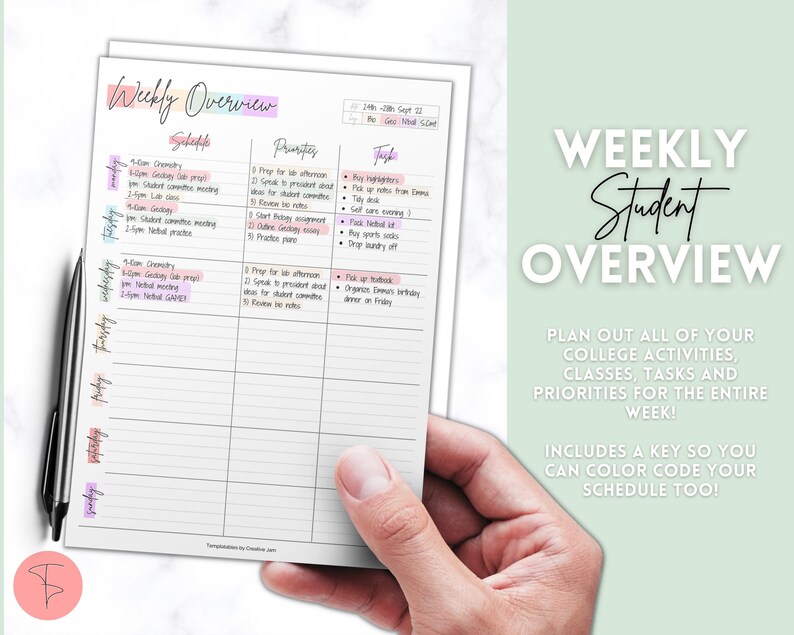 Weekly Overview
24th -28th Sept 22
Bio Geo N'ball S.Cmt
Schedule
Priorities
Task
monday
9-10am: Chemistry
11-12pm: Geology (lab prep)
1pm: Student committee meeting
2-5pm: Lab class
1) Prep for lab afternoon
2) Speak to president about
ideas for student committee
3) Review bio notes
• Buy highlighters
• Pick up notes from Emma
• Tidy desk
• Self care evening :)
tuesday
9-10am: Geology
1pm: Student committee meeting
2-5pm: Netball practice
1) Start Biology assignment
2) Outline Geology essay
3) Practice piano
• Pack Netball kit
• Buy sports socks
• Drop laundry off
wednesday
9-10am: Chemistry
11-12pm: Geology (lab prep)
1pm: Netball meeting
2-5pm: Netball GAME!!
1) Prep for lab afternoon
2) Speak to president about
ideas for student committee
3) Review bio notes
• Pick up textbook
• Organize Emma's birthday
dinner on Friday
thursday
friday
saturday
sunday
Templatables by Creative Jam
WEEKLY
Student
OVERVIEW
PLAN OUT ALL OF YOUR
COLLEGE ACTIVITIES,
CLASSES, TASKS AND
PRIORITIES FOR THE ENTIRE
WEEK!
INCLUDES A KEY SO YOU
CAN COLOR CODE YOUR
SCHEDULE TOO!